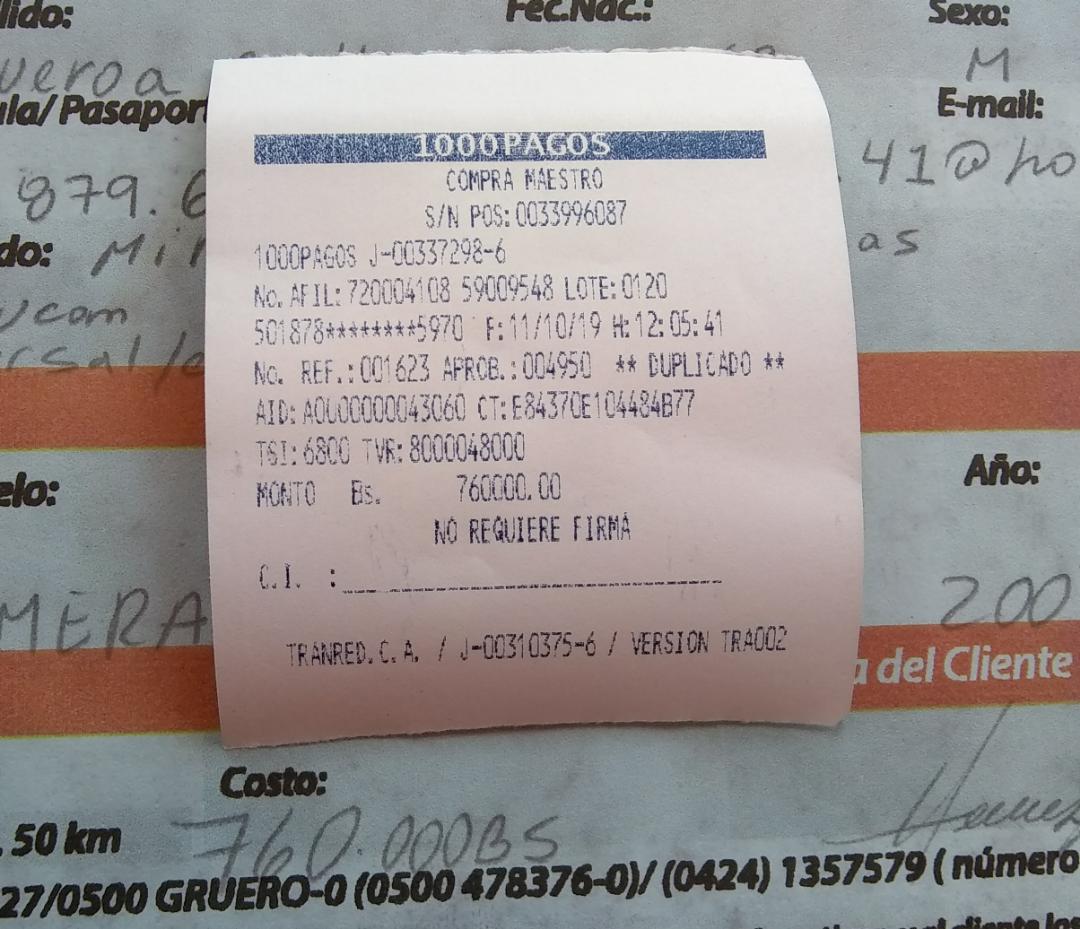 Fec.Nac.:
Sexo:
M
E-mail:
41@ho
879.6
as
1000PAGOS
COMPRA MAESTRO
S/N POS:0033996087
1000PAGOS J-00337298-6
No. AFIL:720004108 59009548 LOTE:0120
501878********5970 F:11/10/19 H:12:05:41
No. REF.:001623 APROB.:004950 ** DUPLICADO **
AID:A0000000043060 CT:E84370E104484B77
TSI:6800 TVR:8000048000
MONTO Bs. 760000.00
NO REQUIERE FIRMA
C.I. :
TRANRED.C.A. / J-00310375-6 / VERSION TRA002
Año:
MERA
200
a del Cliente
Costo:
50 km
760.000BS
27/0500 GRUERO-0 (0500 478376-0)/ (0424) 1357579 ( número